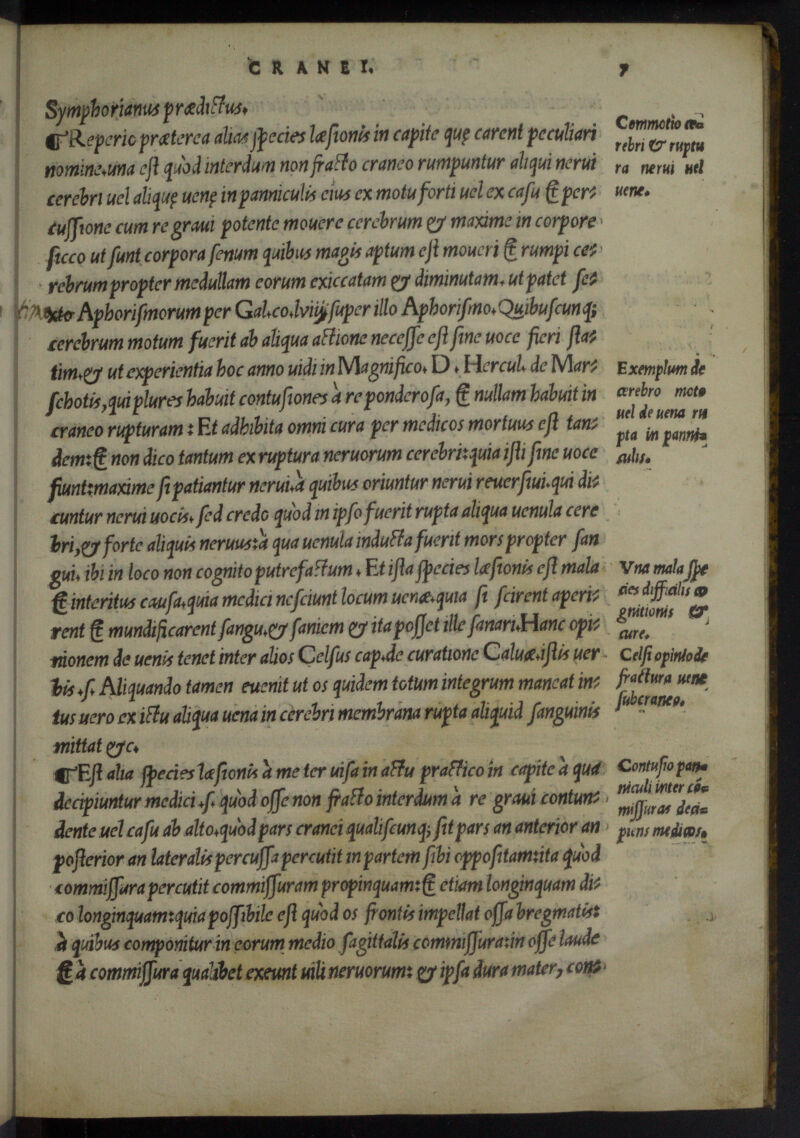 CRANEI. 7
Symphorianus prædictus.
¶Reperio præterea alias species læsionis in capite quę carent peculiari
nomine.una est quòd interdum non fracto craneo rumpuntur aliqui nerui
cerebri uel aliquę uenę in panniculis eius ex motu forti uel ex casu & per=
cussione cum re graui potente mouere cerebrum & maxime in corpore
sicco ut sunt corpora senum quibus magis aptum est moueri & rumpi ce=
rebrum propter medullam eorum exiccatam & diminutam. ut patet se=
xto Aphorismorum per Gal.co.lviij.super illo Aphorismo.Quibuscunq;
cerebrum motum fuerit ab aliqua actione necesse est sine uoce fieri sta=
tim.& ut experientia hoc anno uidi in Magnifico. D. Hercul. de Mar=
schotis, qui plures habuit contusiones à re ponderosa, & nullam habuit in
craneo rupturam: Et adhibita omni cura per medicos mortuus est tan=
dem:& non dico tantum ex ruptura neruorum cerebri:quia isti sine uoce
fiunt:maxime si patiantur nerui.à quibus oriuntur nerui reuersiui.qui di=
cuntur nerui uocis. sed credo quòd in ipso fuerit rupta aliqua uenula cere
bri,& forte aliquis neruus:à qua uenula inducta fuerit mors propter san
gui. ibi in loco non cognito putrefactum. Et ista species læsionis est mala
& interitus causa.quia medici nesciunt locum uenæ.quia si scirent aperi=
rent & mundificarent sangu.& saniem & ita posset ille sanari.Hanc opi=
nionem de uenis tenet inter alios Celsus cap.de curatione Caluæ.istis uer
bis .s. Aliquando tamen euenit ut os quidem totum integrum maneat in=
tus uero ex ictu aliqua uena in cerebri membrana rupta aliquid sanguinis
mittat &c.
¶Est alia species læsionis à me ter uisa in actu practico in capite à qua
decipiuntur medici .s. quòd osse non fracto interdum à re graui contun=
dente uel casu ab alto.quòd pars cranei qualiscunq; sit pars an anterior an
posterior an lateralis percussa percutit in partem sibi oppositam:ita quòd
commissura percutit commissuram propinquam:& etiam longinquam di=
co longinquam:quia possibile est quòd os frontis impellat ossa bregmatis:
à quibus componitur in eorum medio sagittalis commissura:in osse laude
& à commissura qualibet exeunt uili neruorum: & ipsa dura mater, con=
Commotio ce=
rebri & ruptu
ra nerui uel
uene.
Exemplum de
cerebro moto
uel de uena ru
pta in panni=
culis.
Vna mala spe
cies difficilis co
gnitionis &
cure.
Celsi opinio de
fractura uene
subcraneo.
Contusio pan=
niculi inter co=
missuras deci=
piens medicos.